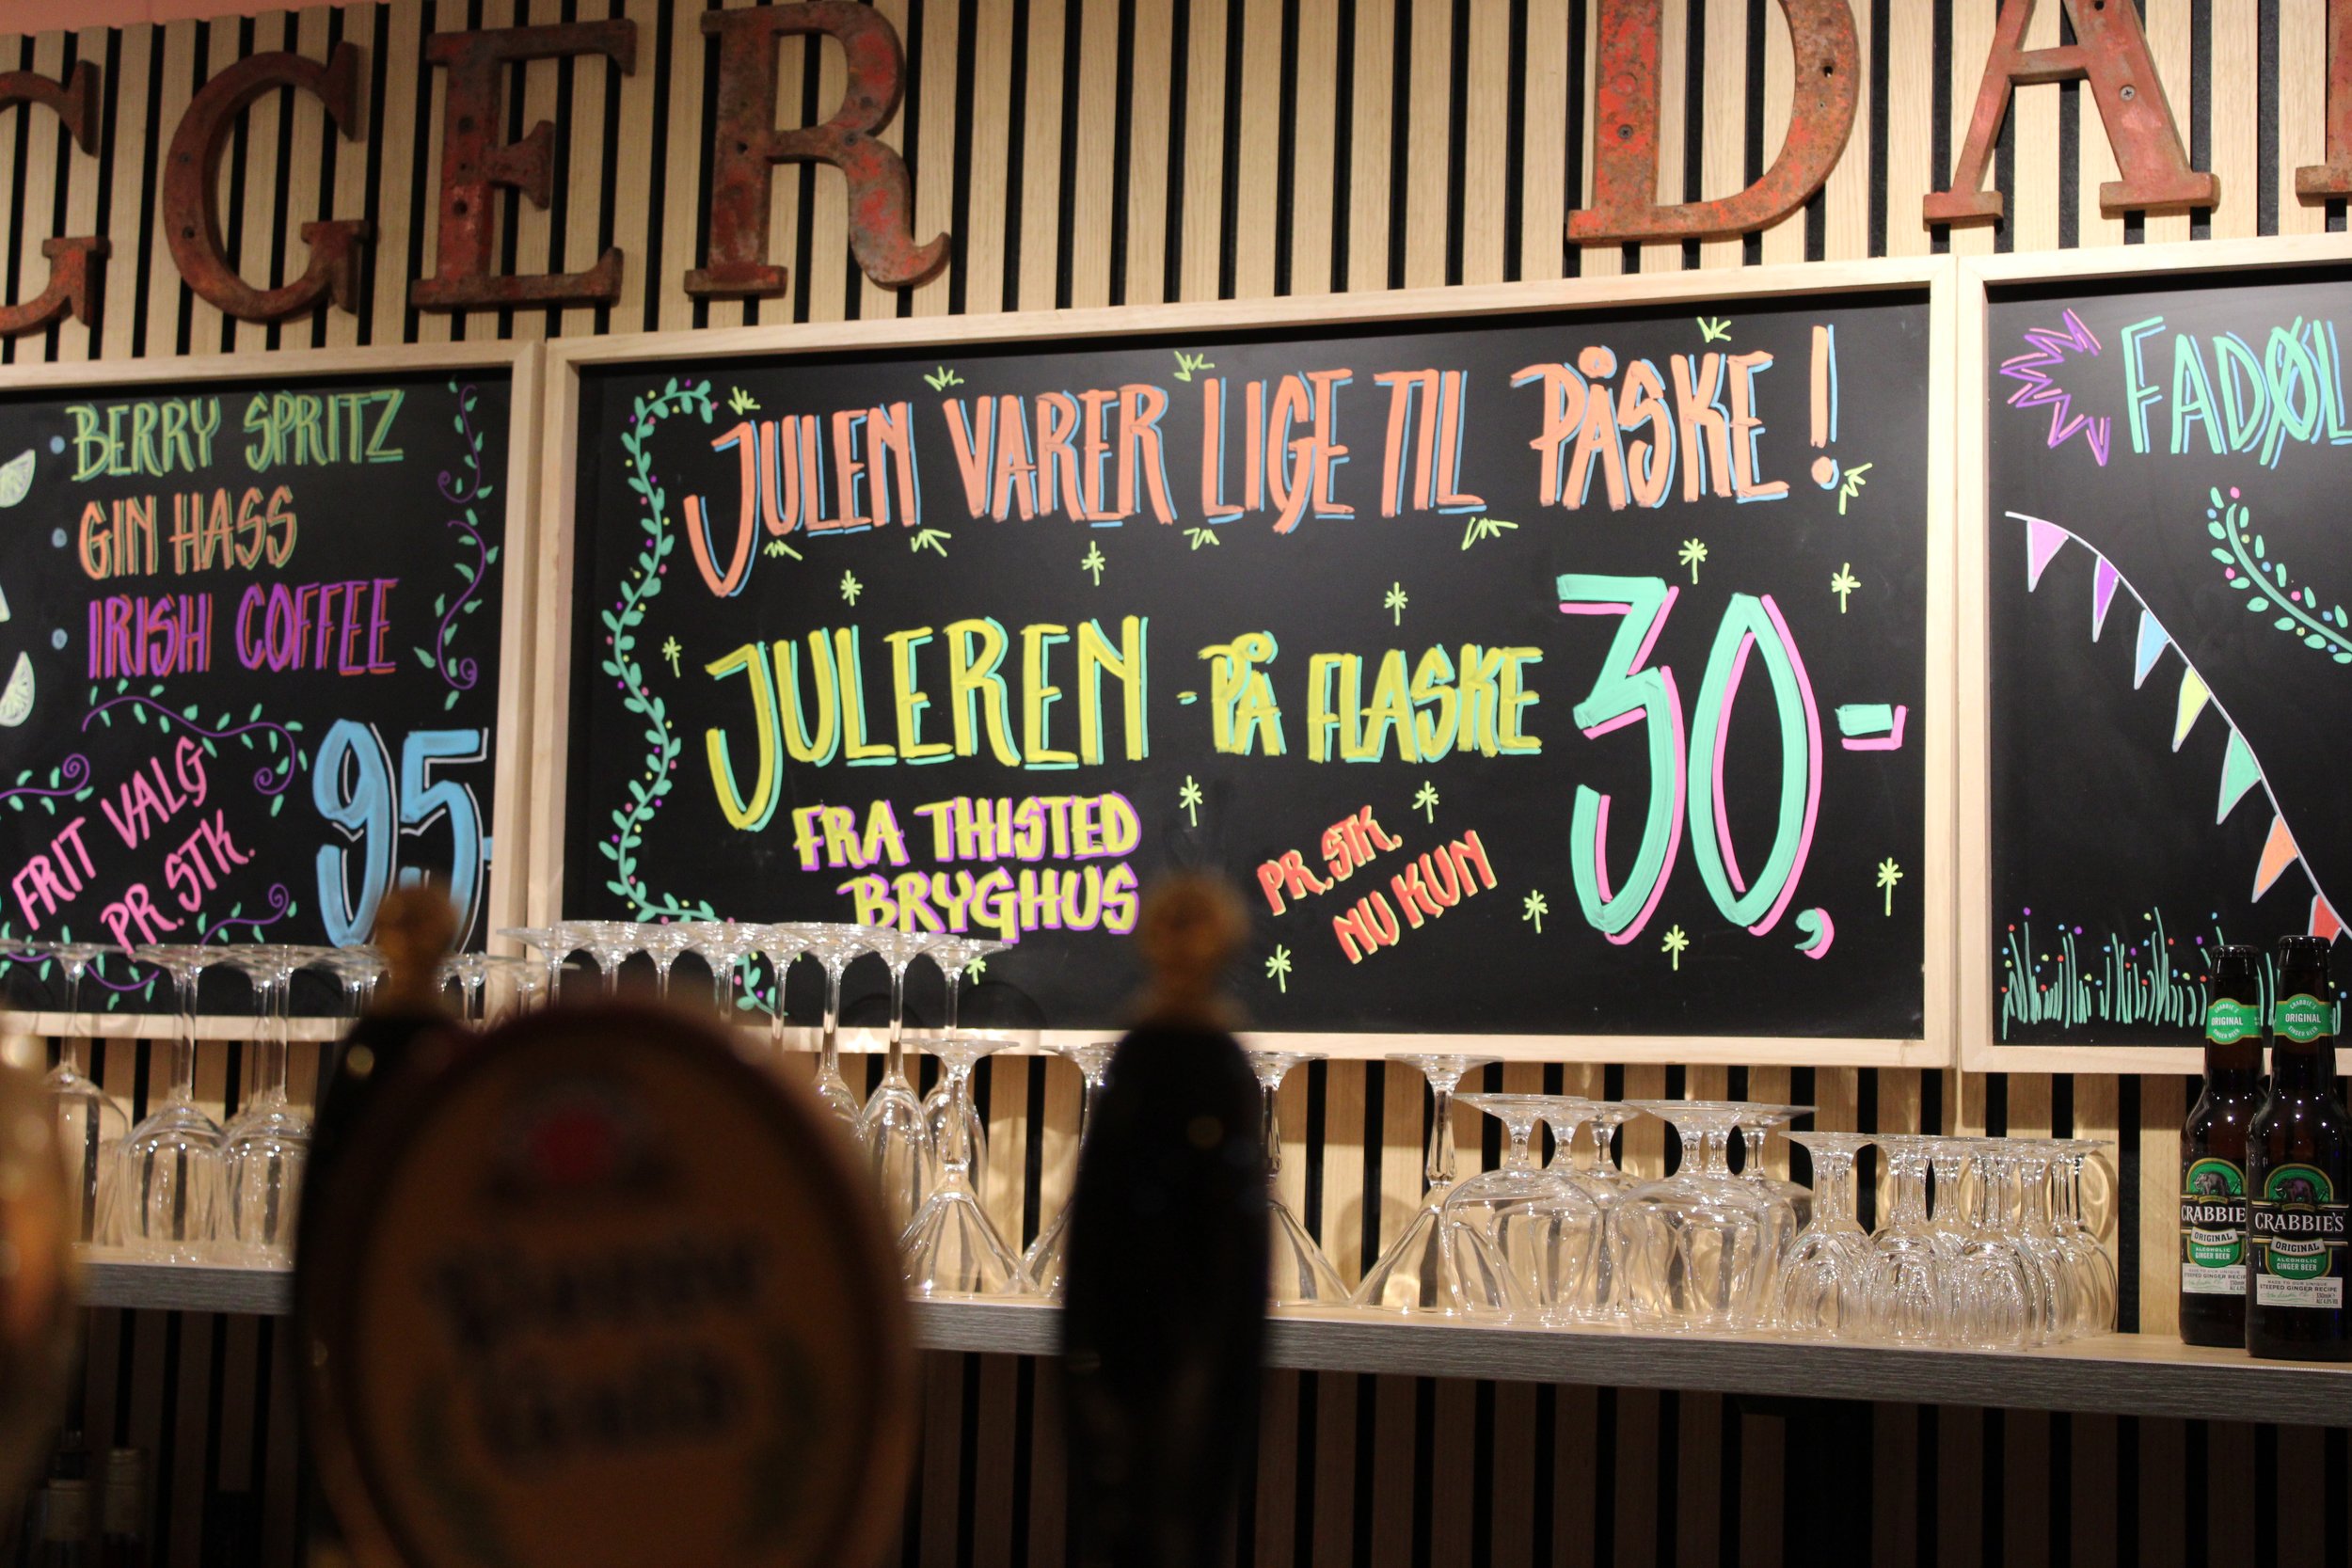 GGER DA
BERRY SPRITZ
GIN HASS
IRISH COFFEE
FRIT VALG
PR. STK.
95,-
JULEN VARER LIGE TIL PÅSKE!
JULEREN - PÅ FLASKE
FRA THISTED
BRYGHUS
PR. STK.
NU KUN
30,-
FADØL
ORIGINAL
CRABBIE
ORIGINAL
ALCOHOLIC
GINGER BEER
CRABBIE'S
ORIGINAL
GINGER BEER
CRABBIE'S
ORIGINAL
ALCOHOLIC
GINGER BEER
STEEPED GINGER RECIPE